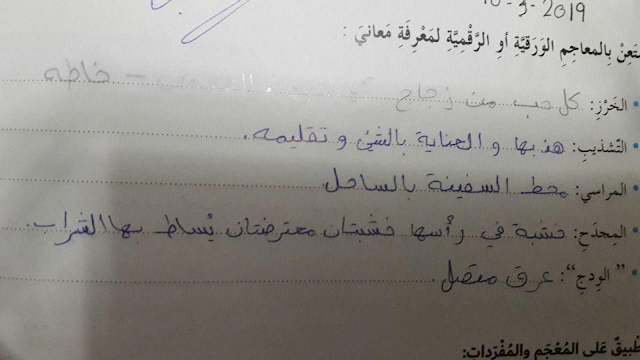 10-3-2019
ستَعِنْ بِالمعاجِمِ الوَرَقيَّةِ أو الرَّقْمِيَّةِ لمَعْرِفَةِ مَعانيَ :
• الخَرَزِ: كل حب من زجاج – خاطه
• التّشذيبِ: هذبها و العناية بالشيء و تقليمه.
• المراسي: محط السفينة بالساحل
• المِجدَحِ: خشبة في رأسها خشبتان معترضتان يُساط بها الشراب.
• "الوِدجِ": عرق متصل.
طبيقٌ عَلى المُعْجَمِ والمُفْرَداتِ: